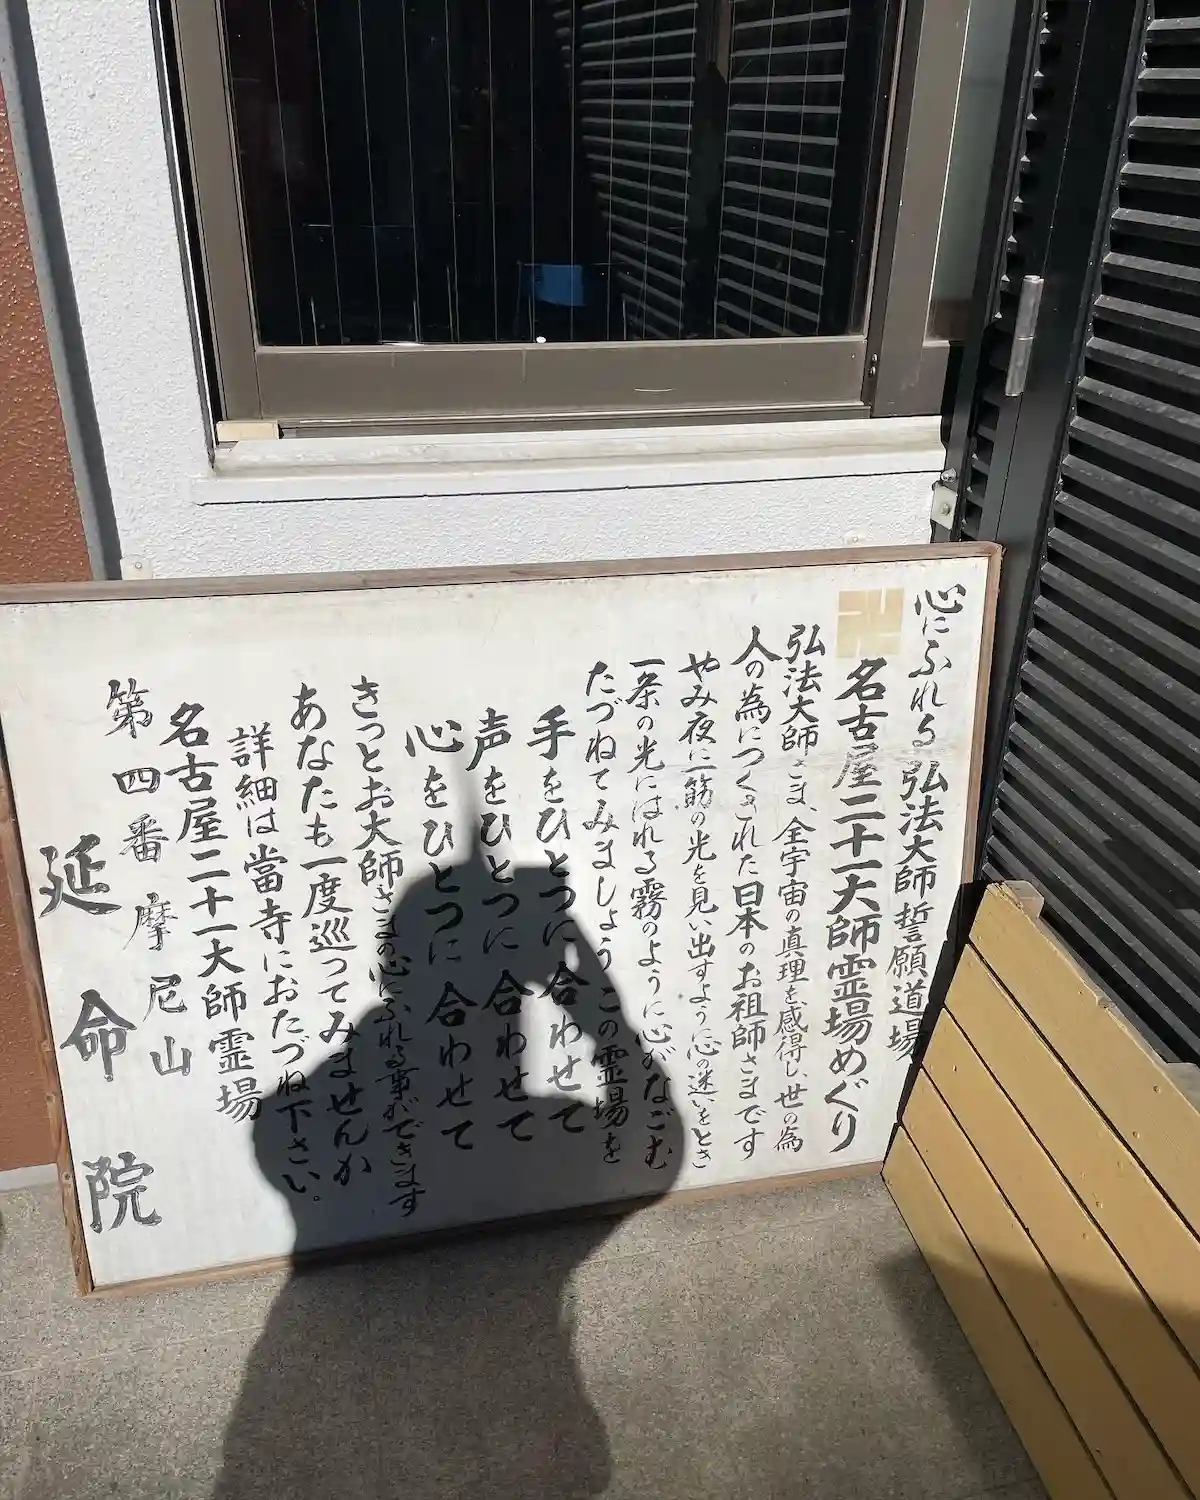 心にふれる弘法大師誓願道場
卍名古屋二十一大師霊場めぐり
弘法大師さま、全宇宙の真理を感得し、世の為
人の為につくされた日本のお祖師さまです
やみ夜に一筋の光を見い出すように心の迷いをとき
一条の光にはれる霧のように心がなごむ
たづねてみましょうこの霊場を
手をひとつに合わせて
声をひとつに合わせて
心をひとつに合わせて
きっとお大師さまの心にふれる事ができます
あなたも一度巡ってみませんか
詳細は當寺におたづね下さい。
名古屋二十一大師霊場
第四番 摩尼山
延命院